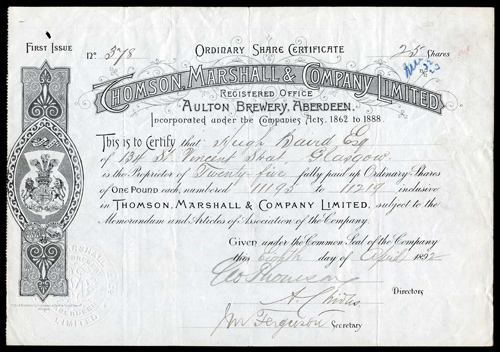 FIRST ISSUE
No. 378
ORDINARY SHARE CERTIFICATE
25 Shares
THOMSON, MARSHALL & COMPANY LIMITED
REGISTERED OFFICE
AULTON BREWERY, ABERDEEN.
Incorporated under the Companies Acts, 1862 to 1888.
This is to Certify that Hugh Baird Esq
of 134 St. Vincent Street, Glasgow
is the Proprietor of Twenty five fully paid up Ordinary Shares
of ONE POUND each, numbered 11195 to 11219 inclusive
in THOMSON, MARSHALL & COMPANY LIMITED, subject to the
Memorandum and Articles of Association of the Company.
Given under the Common Seal of the Company
this Eighth day of April 1892
Geo Thomson
Directors
Jn Ferguson Secretary
LIMITED